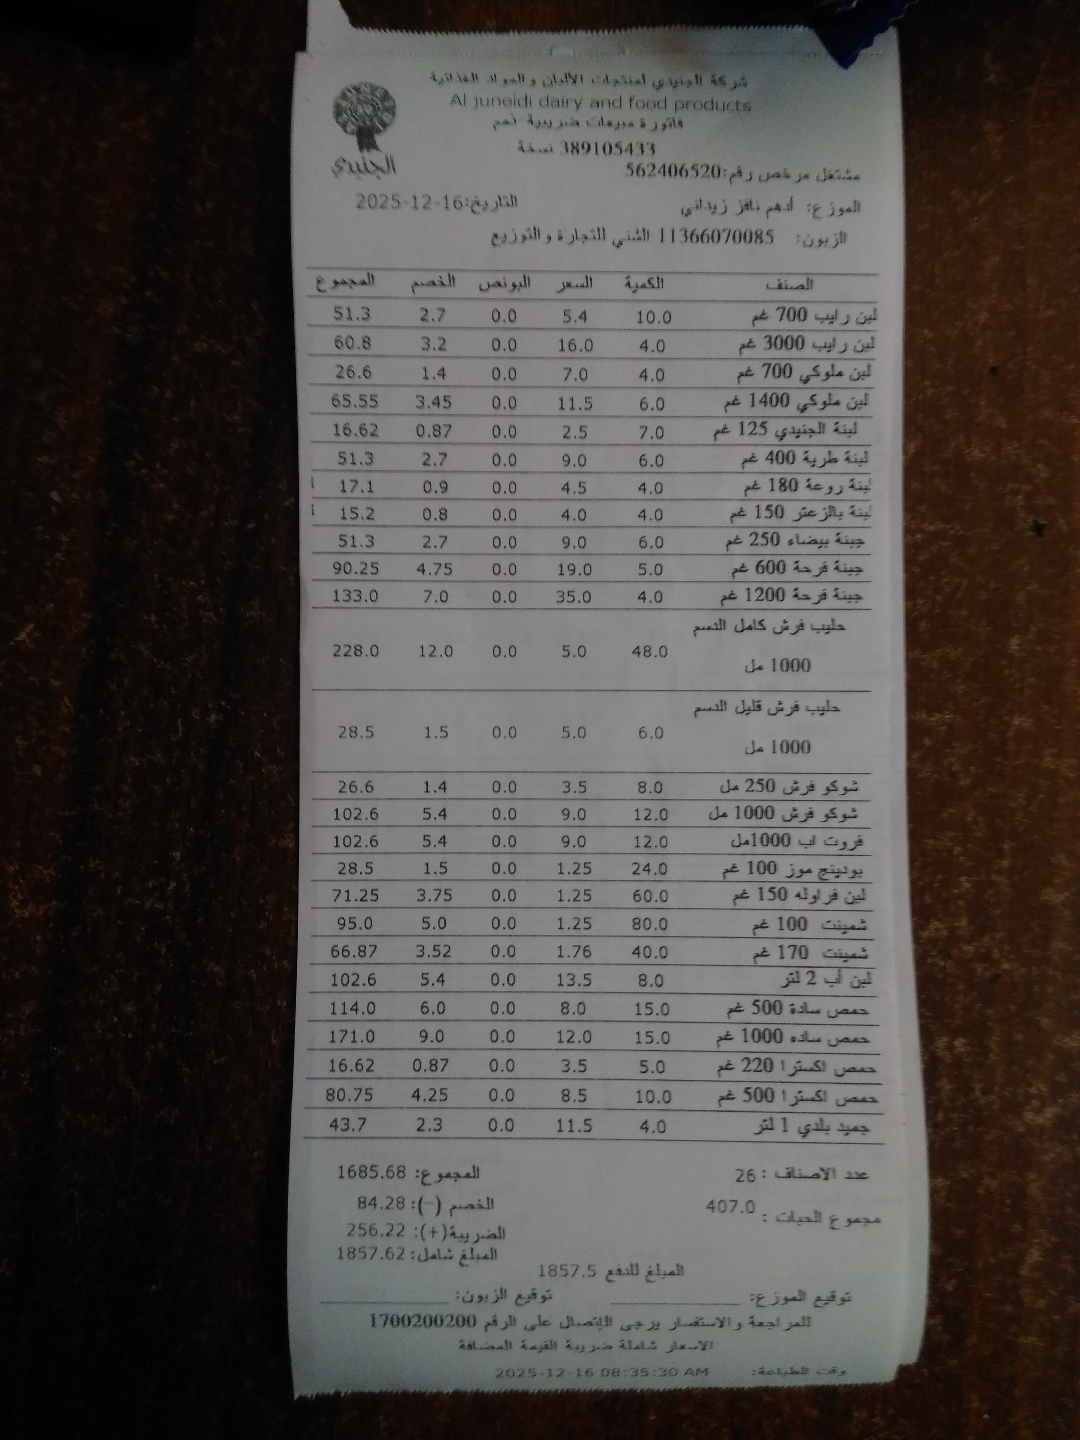 شركة الجنيدي لمنتجات الألبان والمواد الغذائية
Al juneidi dairy and food products
فاتورة مبيعات ضريبية-ذمم
389105433 نسخة
الجنيدي
مشتغل مرخص رقم:562406520
الموزع: أدهم نافز زيداني التاريخ:2025-12-16
الزبون: 11366070085 الشني للتجارة والتوزيع
الصنف الكمية السعر البونص الخصم المجموع
لبن رايب 700 غم 10.0 5.4 0.0 2.7 51.3
لبن رايب 3000 غم 4.0 16.0 0.0 3.2 60.8
لبن ملوكي 700 غم 4.0 7.0 0.0 1.4 26.6
لبن ملوكي 1400 غم 6.0 11.5 0.0 3.45 65.55
لبنة الجنيدي 125 غم 7.0 2.5 0.0 0.87 16.62
لبنة طرية 400 غم 6.0 9.0 0.0 2.7 51.3
لبنة روعة 180 غم 4.0 4.5 0.0 0.9 17.1
لبنة بالزعتر 150 غم 4.0 4.0 0.0 0.8 15.2
جبنة بيضاء 250 غم 6.0 9.0 0.0 2.7 51.3
جبنة فرحة 600 غم 5.0 19.0 0.0 4.75 90.25
جبنة فرحة 1200 غم 4.0 35.0 0.0 7.0 133.0
حليب فرش كامل الدسم
1000 مل 48.0 5.0 0.0 12.0 228.0
حليب فرش قليل الدسم
1000 مل 6.0 5.0 0.0 1.5 28.5
شوكو فرش 250 مل 8.0 3.5 0.0 1.4 26.6
شوكو فرش 1000 مل 12.0 9.0 0.0 5.4 102.6
فروت اب 1000مل 12.0 9.0 0.0 5.4 102.6
بودينج موز 100 غم 24.0 1.25 0.0 1.5 28.5
لبن فراوله 150 غم 60.0 1.25 0.0 3.75 71.25
شمينت 100 غم 80.0 1.25 0.0 5.0 95.0
شمينت 170 غم 40.0 1.76 0.0 3.52 66.87
لبن أب 2 لتر 8.0 13.5 0.0 5.4 102.6
حمص سادة 500 غم 15.0 8.0 0.0 6.0 114.0
حمص ساده 1000 غم 15.0 12.0 0.0 9.0 171.0
حمص اكسترا 220 غم 5.0 3.5 0.0 0.87 16.62
حمص اكسترا 500 غم 10.0 8.5 0.0 4.25 80.75
جميد بلدي 1 لتر 4.0 11.5 0.0 2.3 43.7
عدد الاصناف : 26 المجموع: 1685.68
مجموع الحبات : 407.0 الخصم (-): 84.28
الضريبة(+): 256.22
المبلغ شامل: 1857.62
المبلغ للدفع 1857.5
توقيع الموزع: توقيع الزبون:
للمراجعة والاستفسار يرجى الإتصال على الرقم 1700200200
الاسعار شاملة ضريبة القيمة المضافة
وقت الطباعة: 2025-12-16 08:35:30 AM